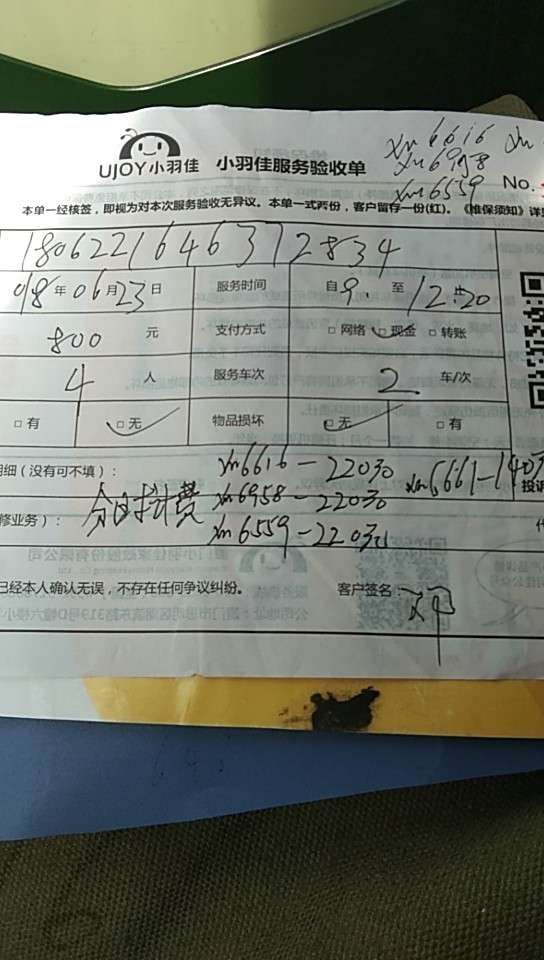 xm6616 xm
xm6958
xm6559
UJOY小羽佳 小羽佳服务验收单
No.
本单一经核签，即视为对本次服务验收无异议。本单一式两份，客户留存一份(红)。《维保须知》详
1806221646312834
018年06月23日 服务时间 自9. 至12:20
800 元 支付方式 □网络 □现金 □转账
4 人 服务车次 2 车/次
□有 □无 物品损坏 □无 □有
明细（没有可不填）： xm6616-220元 xm6661-140元
投诉
修业务）： 今日提计费 xm6958-220元
xm6559-220元
已经本人确认无误，不存在任何争议纠纷。 客户签名：